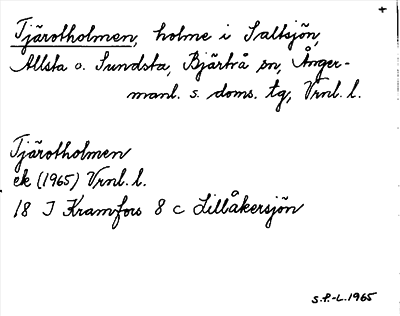 +
Tjärotholmen, holme i Saltsjön,
Allsta o. Sundsta, Bjärtrå sn, Ånger-
manl. s. doms. tg, Vrnl. l.
Tjärotholmen
ek (1965) Vrnl. l.
18 I Kramfors 8 c Lillåkersjön
S.P.-L. 1965